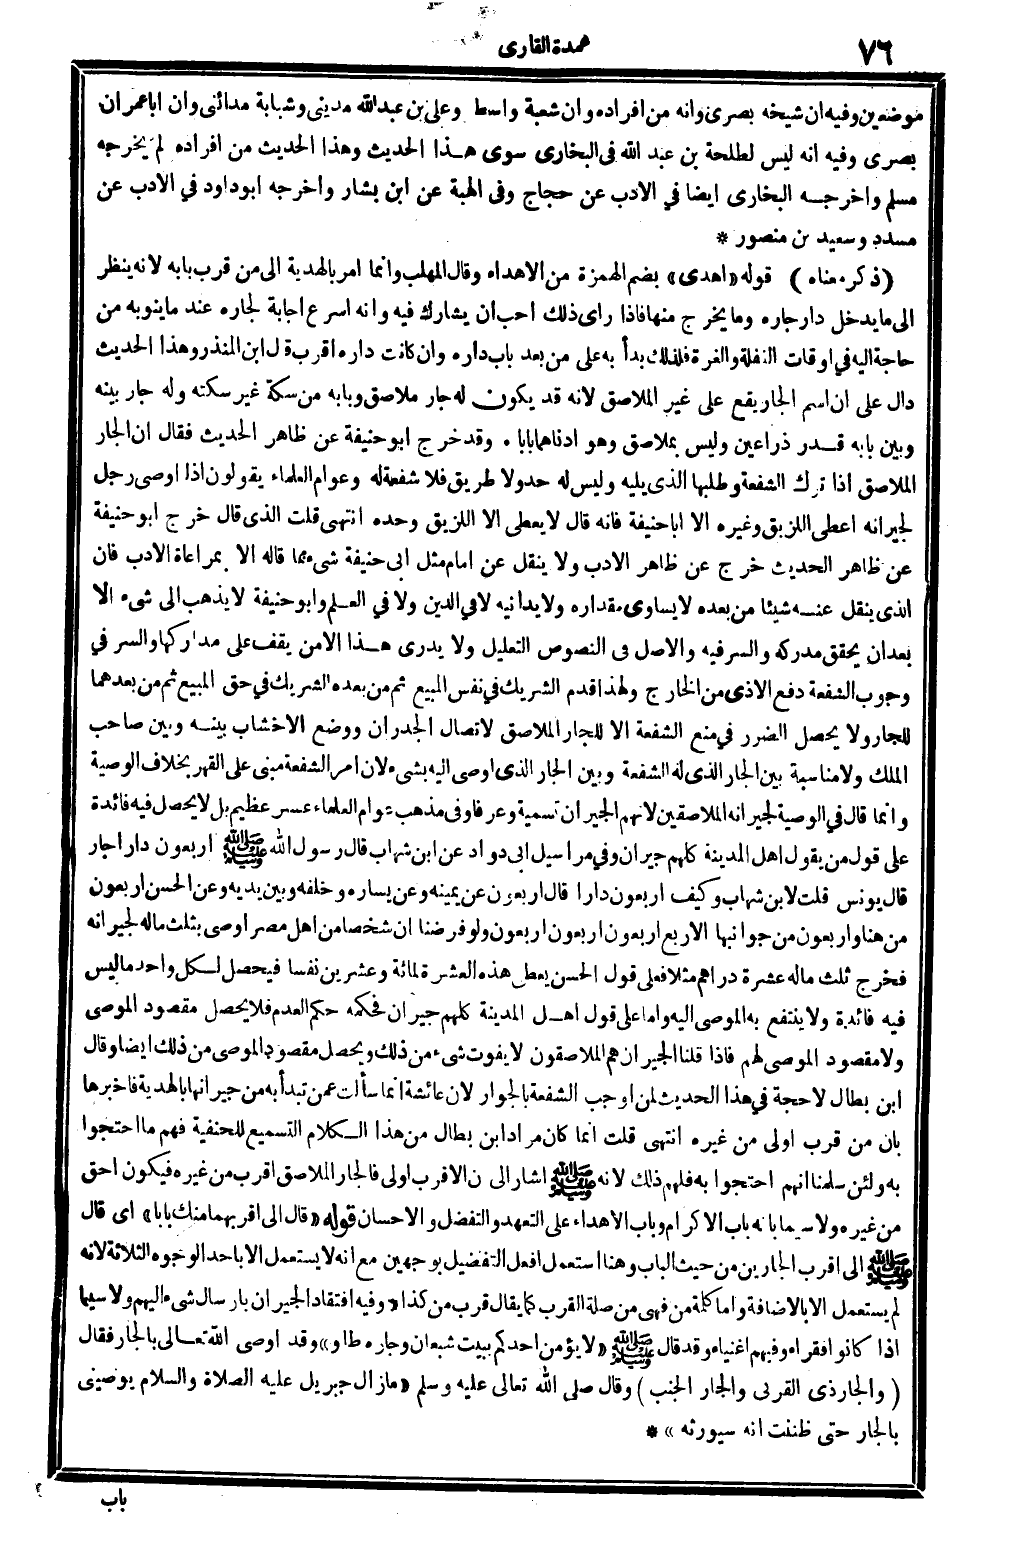 ٧٦
عمدة القارى
موضعين وفيه ان شيخه بصرى وانه من افراده وان شعبة واسط وعلى بن عبدالله مدينى وشبابة مدائنى وان اباعمران
بصرى وفيه انه ليس لطلحة بن عبد الله فى البخارى سوى هذا الحديث وهذا الحديث من افراده لم يخرجه
مسلم واخرجه البخارى ايضا في الادب عن حجاج وفى الهبة عن ابن بشار واخرجه ابوداود في الادب عن
مسدد وسعيد بن منصور *
(ذكر معناه) قوله «اهدى» بضم الهمزة من الاهداء وقال المهلب وانما امر بالهدية الى من قرب بابه لانه ينظر
الى مايدخل دار جاره ومايخرج منها فاذا راى ذلك احب أن يشارك فيه وانه اسرع اجابة لجاره عند ماينوبه من
حاجة اليه في اوقات الغفلة والغرة فلذلك بدأ به على من بعد باب داره وان كانت داره اقرب قال ابن المنذر وهذا الحديث
دال على ان اسم الجار يقع على غير الملاصق لانه قد يكون له جار ملاصق وبابه من سكة غير سكته وله جار بينه
وبين بابه قدر ذراعين وليس بملاصق وهو ادناهما بابا • وقد خرج ابوحنيفة عن ظاهر الحديث فقال ان الجار
الملاصق اذا ترك الشفعة وطلبها الذى يليه وليس له حد ولا طريق فلا شفعة له وعوام العلماء يقولون اذا اوصى رجل
لجيرانه اعطى اللزيق وغيره الا اباحنيفة فانه قال لا يعطى الا اللزيق وحده انتهى قلت الذى قال خرج ابوحنيفة
عن ظاهر الحديث خرج عن ظاهر الادب ولا ينقل عن امام مثل ابى حنيفة شىء مما قاله الا بمراعاة الادب فان
الذى ينقل عنه شيئا من بعده لا يساوى مقداره ولا يدانيه لا في الدين ولا في العلم وابوحنيفة لا يذهب الى شىء الا
بعد ان يحقق مدركه والسر فيه والاصل فى النصوص التعليل ولا يدرى هذا الا من يقف على مداركها والسر في
وجوب الشفعة دفع الاذى من الخارج ولهذا قدم الشريك في نفس المبيع ثم من بعده الشريك في حق المبيع ثم من بعدهما
للجار ولا يحصل الضرر في منع الشفعة الا للجار الملاصق لاتصال الجدران ووضع الاخشاب بينه وبين صاحب
الملك ولا مناسبة بين الجار الذى له الشفعة وبين الجار الذى اوصى اليه بشىء لان امر الشفعة مبنى على القهر بخلاف الوصية
وانما قال في الوصية لجيرانه الملاصقين لانهم الجيران تسمية وعرفا وفى مذهب عوام العلماء عسر عظيم بل لا يحصل فيه فائدة
على قول من يقول اهل المدينة كلهم جيران وفي مراسيل ابى دواد عن ابن شهاب قال رسول الله ﷺ اربعون دارا جار
قال يونس قلت لابن شهاب وكيف اربعون دارا قال اربعون عن يمينه وعن يساره وخلفه وبين يديه وعن الحسن اربعون
من هنا واربعون من جوانبها الاربع اربعون اربعون اربعون ولو فرضنا ان شخصا من اهل مصر اوصى بثلث ماله لجيرانه
فخرج ثلث ماله عشرة دراهم مثلا فعلى قول الحسن يعطى هذه العشرة لمائة وعشرين نفسا فيحصل لكل واحد ماليس
فيه فائدة ولا ينتفع به الموصى اليه واما على قول اهل المدينة كلهم جيران فحكمه حكم العدم فلا يحصل مقصود الموصى
ولا مقصود الموصى لهم فاذا قلنا الجيران هم الملاصقون لا يفوت شىء من ذلك ويحصل مقصود الموصى من ذلك ايضا وقال
ابن بطال لا حجة في هذا الحديث لمن اوجب الشفعة بالجوار لان عائشة انما سألت عمن تبدأ به من جيرانها بالهدية فاخبرها
بان من قرب اولى من غيره انتهى قلت انما كان مراد ابن بطال من هذا الكلام التسميع للحنفية فهم ما احتجوا
به ولئن سلمنا انهم احتجوا به فلهم ذلك لانه ﷺ اشار الى ن الاقرب اولى فالجار الملاصق اقرب من غيره فيكون احق
من غيره ولا سيما بانه باب الاكرام وباب الاهداء على التعهد والتفضل والاحسان قوله «قال الى اقربهما منك بابا» اى قال
ﷺ الى اقرب الجارين من حيث الباب وهنا استعمل افعل التفضيل بوجهين مع انه لا يستعمل الا باحد الوجوه الثلاثة لانه
لم يستعمل الا بالاضافة واما كلمة من فهى من صلة القرب كما يقال قرب من كذا «وفيه افتقاد الجيران بارسال شىء اليهم ولا سيما
اذا كانوا فقراء وفيهم اغنياء وقد قال ﷺ «لا يؤمن احدكم يبيت شبعان وجاره طاو» وقد اوصى الله تعالى بالجار فقال
(والجار ذى القربى والجار الجنب) وقال صلى الله تعالى عليه وسلم «مازال جبريل عليه الصلاة والسلام يوصينى
بالجار حتى ظننت انه سيورثه» *
باب